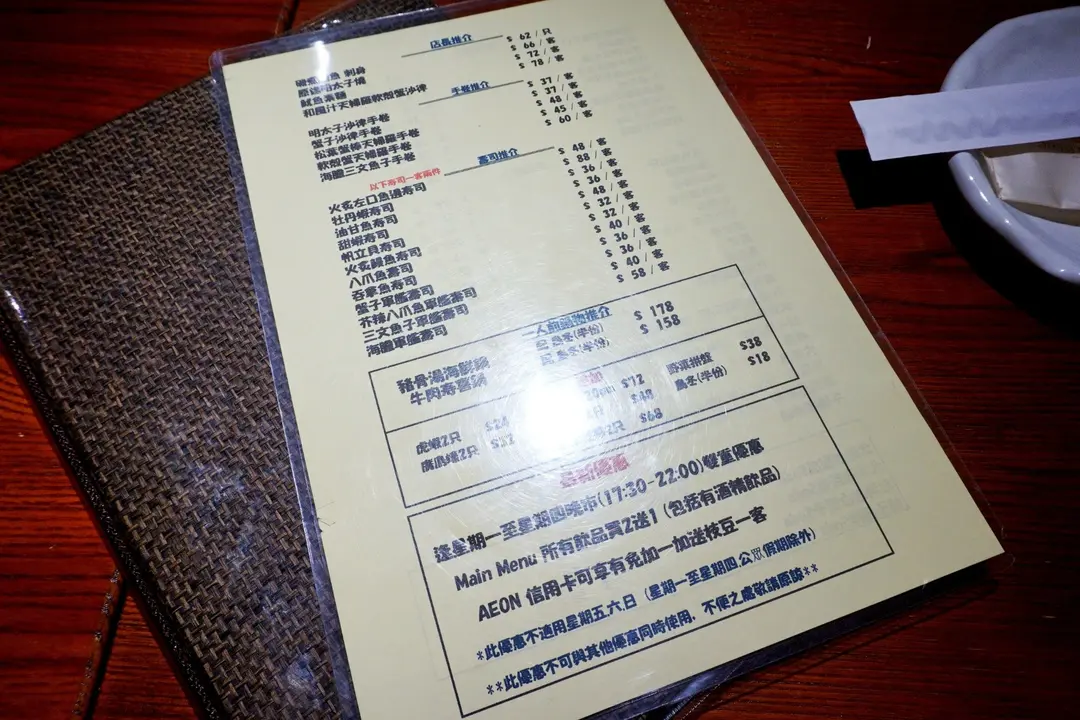 店長推介
刺身 $ 62 / 只
明太子燒 $ 66 / 客
魷魚素麵 $ 72 / 客
和風汁天婦羅軟殼蟹沙律 $ 78 / 客
手卷推介
明太子沙律手卷 $ 37 / 客
蟹子沙律手卷 $ 37 / 客
松葉蟹棒天婦羅手卷 $ 48 / 客
軟殼蟹天婦羅手卷 $ 45 / 客
海膽三文魚子手卷 $ 60 / 客
壽司推介
以下壽司一客兩件
火炙左口魚邊壽司 $ 48 / 客
牡丹蝦壽司 $ 88 / 客
油甘魚壽司 $ 36 / 客
甜蝦壽司 $ 36 / 客
帆立貝壽司 $ 48 / 客
火炙鰻魚壽司 $ 32 / 客
八爪魚壽司 $ 32 / 客
吞拿魚壽司 $ 40 / 客
蟹子軍艦壽司 $ 36 / 客
芥辣八爪魚軍艦壽司 $ 36 / 客
三文魚子軍艦壽司 $ 40 / 客
海膽軍艦壽司 $ 58 / 客
一人前鍋物推介
豬骨湯海鮮鍋 配 烏冬(半份) $ 178
牛肉壽喜鍋 配 烏冬(半份) $ 158
虎蝦2只 $24 $12 野菜拼盤 $38
廣島蠔2只 $32 $48 烏冬(半份) $18
$68
最新優惠
逢星期一至星期四晚市(17:30-22:00)雙重優惠
Main Menu 所有飲品買2送1 (包括有酒精飲品)
AEON 信用卡可享有免加一加送枝豆一客
*此優惠不適用星期五,六,日 (星期一至星期四,公眾假期除外)
**此優惠不可與其他優惠同時使用, 不便之處敬請原諒**